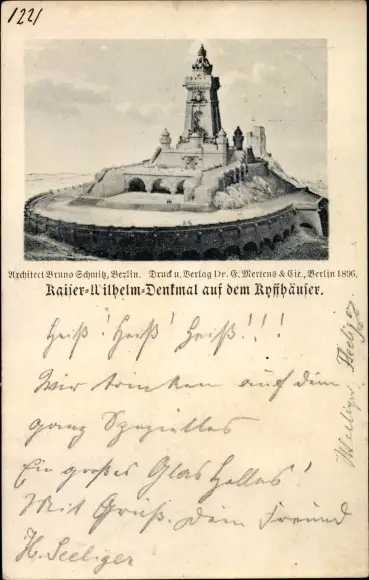 1221
Architect Bruno Schmitz, Berlin. Druck u. Verlag Dr. E. Mertens & Cie., Berlin 1896.
Kaiser-Wilhelm-Denkmal auf dem Kyffhäuser.
Heiß! Heiß! Heiß!!!
Wir trinken auf dein
ganz Spezielles
Ein großes Glas Helles!
Mit Gruß. Dein Freund
H. Seeliger